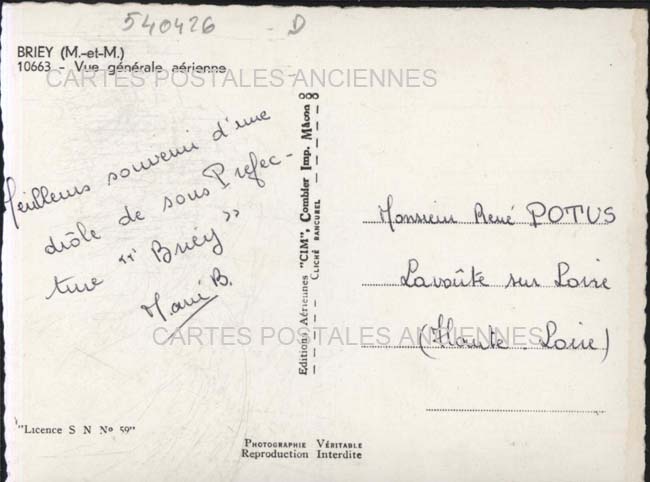 540426 - D
BRIEY (M.-et-M.)
10663 - Vue générale aérienne
CARTES POSTALES ANCIENNES
Meilleurs souvenirs d'une
drôle de sous Préfec-
ture "Briey"
Marié B.
Editions Aériennes "CIM", Combier Imp. Mâcon
CLICHÉ RANCUREL
Monsieur René POTUS
Lavoûte sur Loire
(Haute-Loire)
CARTES POSTALES ANCIENNES
"Licence S N No 59"
PHOTOGRAPHIE VÉRITABLE
Reproduction Interdite